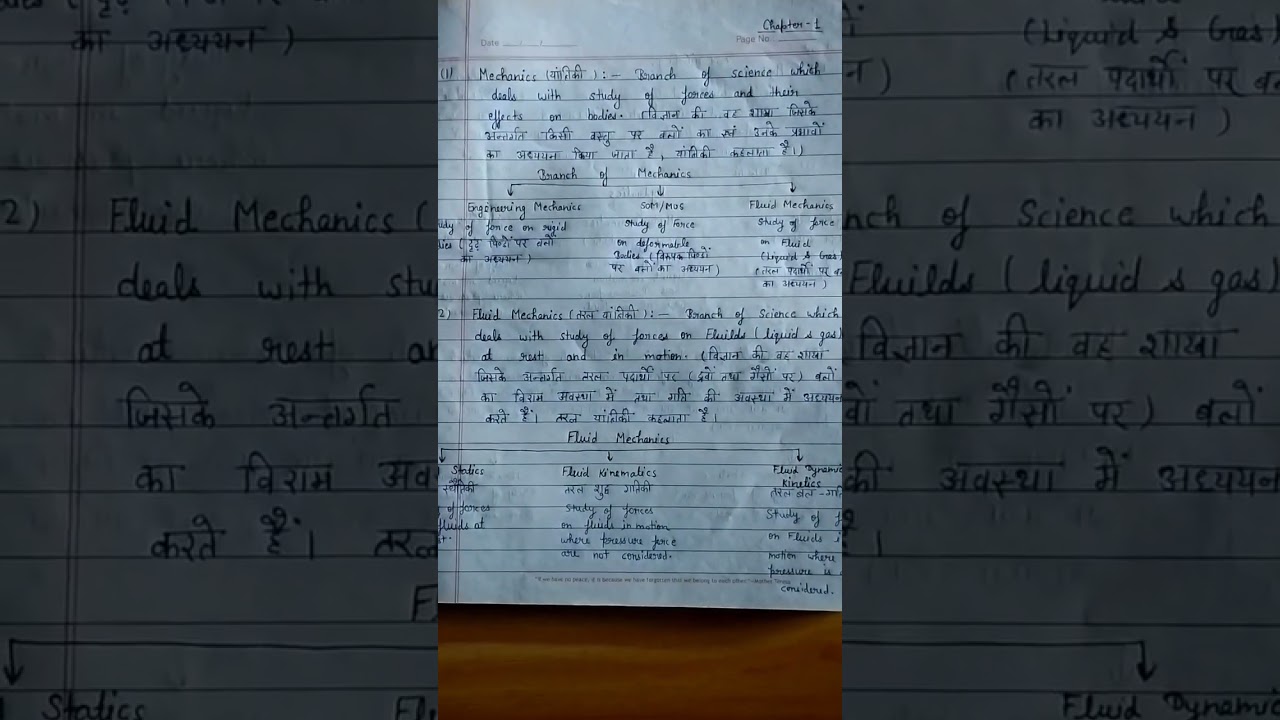 Chapter-1
Date
Page No
(1) Mechanics (यांतिकी) :- Branch of science which
deals with study of forces and their
effects on bodies. (विज्ञान की वह शाखा जिसके
अन्तर्गत किसी वस्तु पर बलों का एवं उनके प्रभावों
का अध्ययन किया जाता है, यांतिकी कहलाता है।)
Branch of Mechanics
Engineering Mechanics SOM/MOS Fluid Mechanics
of force on rigid Study of Force Study of force
पिण्डों पर बलों on deformable on Fluid
का अध्ययन) Bodies ( पिण्डों (Liquid & Gas)
पर बलों का अध्ययन) (तरल पदार्थों पर
का अध्ययन)
2) Fluid Mechanics (तरल यांतिकी) :- Branch of Science which
deals with study of forces on Fluilds (liquid & gas)
at rest and in motion. (विज्ञान की वह शाखा
जिसके अन्तर्गत तरल पदार्थों पर (द्रवों तथा गैसों पर) बलों
का विराम अवस्था में तथा गति की अवस्था में अध्ययन
करते हैं। तरल यांतिकी कहलाता है।
Fluid Mechanics
Statics Fluid Kinematics Fluid Dynamic
Kinetics
स्थैतिकी तरल शुद्ध गतिकी तरल बल-गति
of forces Study of forces Study of f
fluids at on fluids in motion on Fluids i
where pressure force motion where
are not considered. pressure is
considered.
"If we have no peace, it is because we have forgotten that we belong to each other." -Mother Teresa